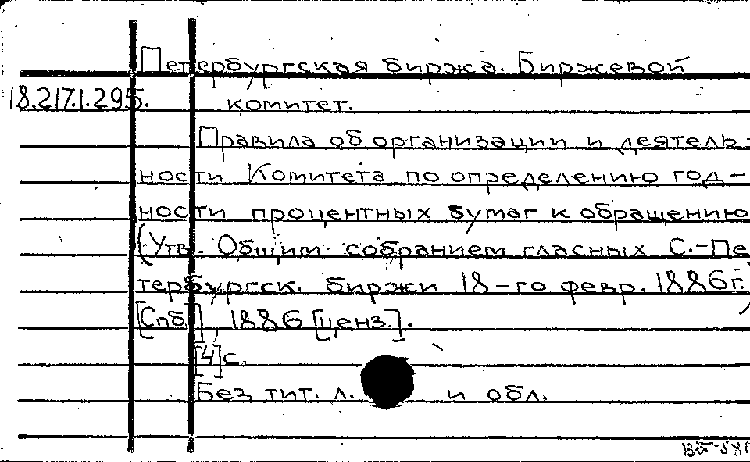 Петербургская биржа. Биржевой
18.217.1.295.
комитет.
Правила об организации и деятель-
ности Комитета по определению год-
ности процентных бумаг к обращению
(Утв. Общим собранием гласных С.-Пе
тербургск. биржи 18-го февр. 1886г.)
[Спб.], 1886 [ценз.].
[4]с.
Без тит. л. и обл.